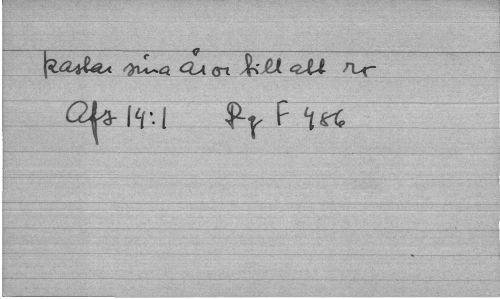 kastar sina åror till att ro
Afz 14:1 Rq F 486